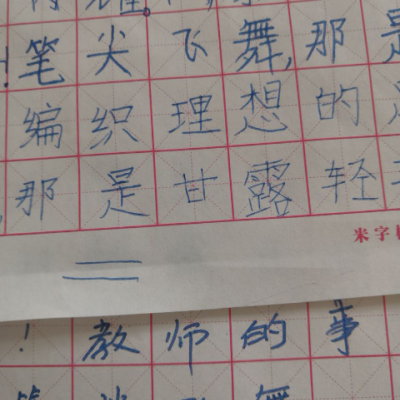 ！笔尖飞舞，那是
编织理想的
，那是甘露轻
米字
！教师的事